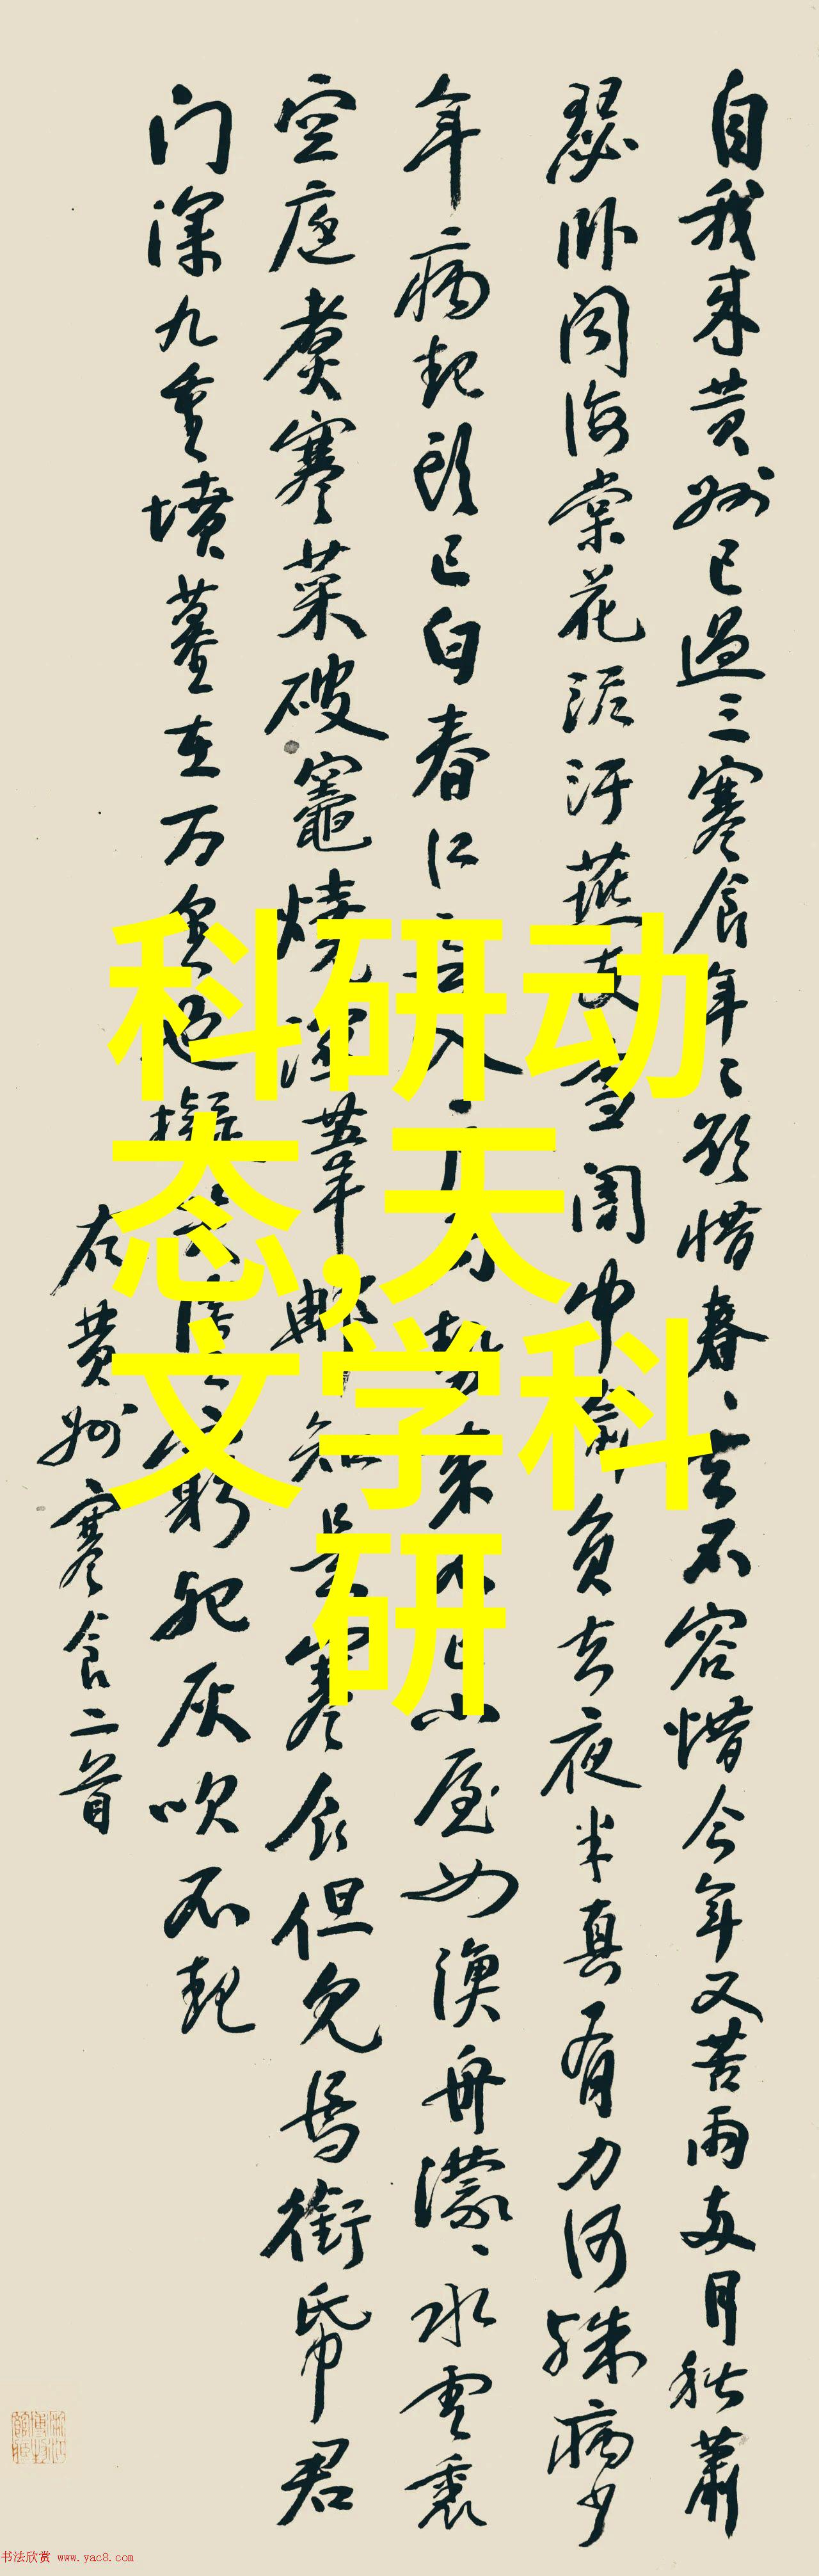 自我来黄州已過三寒食年〻欲惜春〻去不容惜今年又苦雨两月秋蕭
瑟卧闻海棠花泥污燕支雪闇中偷負去夜半真有力何殊病少
年病起頭已白春江入势来不已小屋如渔舟濛〻水雲裏
空庖煮寒菜破竈燒濕葦那知是寒食但見烏銜帋君
门深九重墳墓在万里也擬哭塗窮死灰吹不起
右黄州寒食二首
科研动
态,天
文学科
研
书法欣赏 www.yac8.com